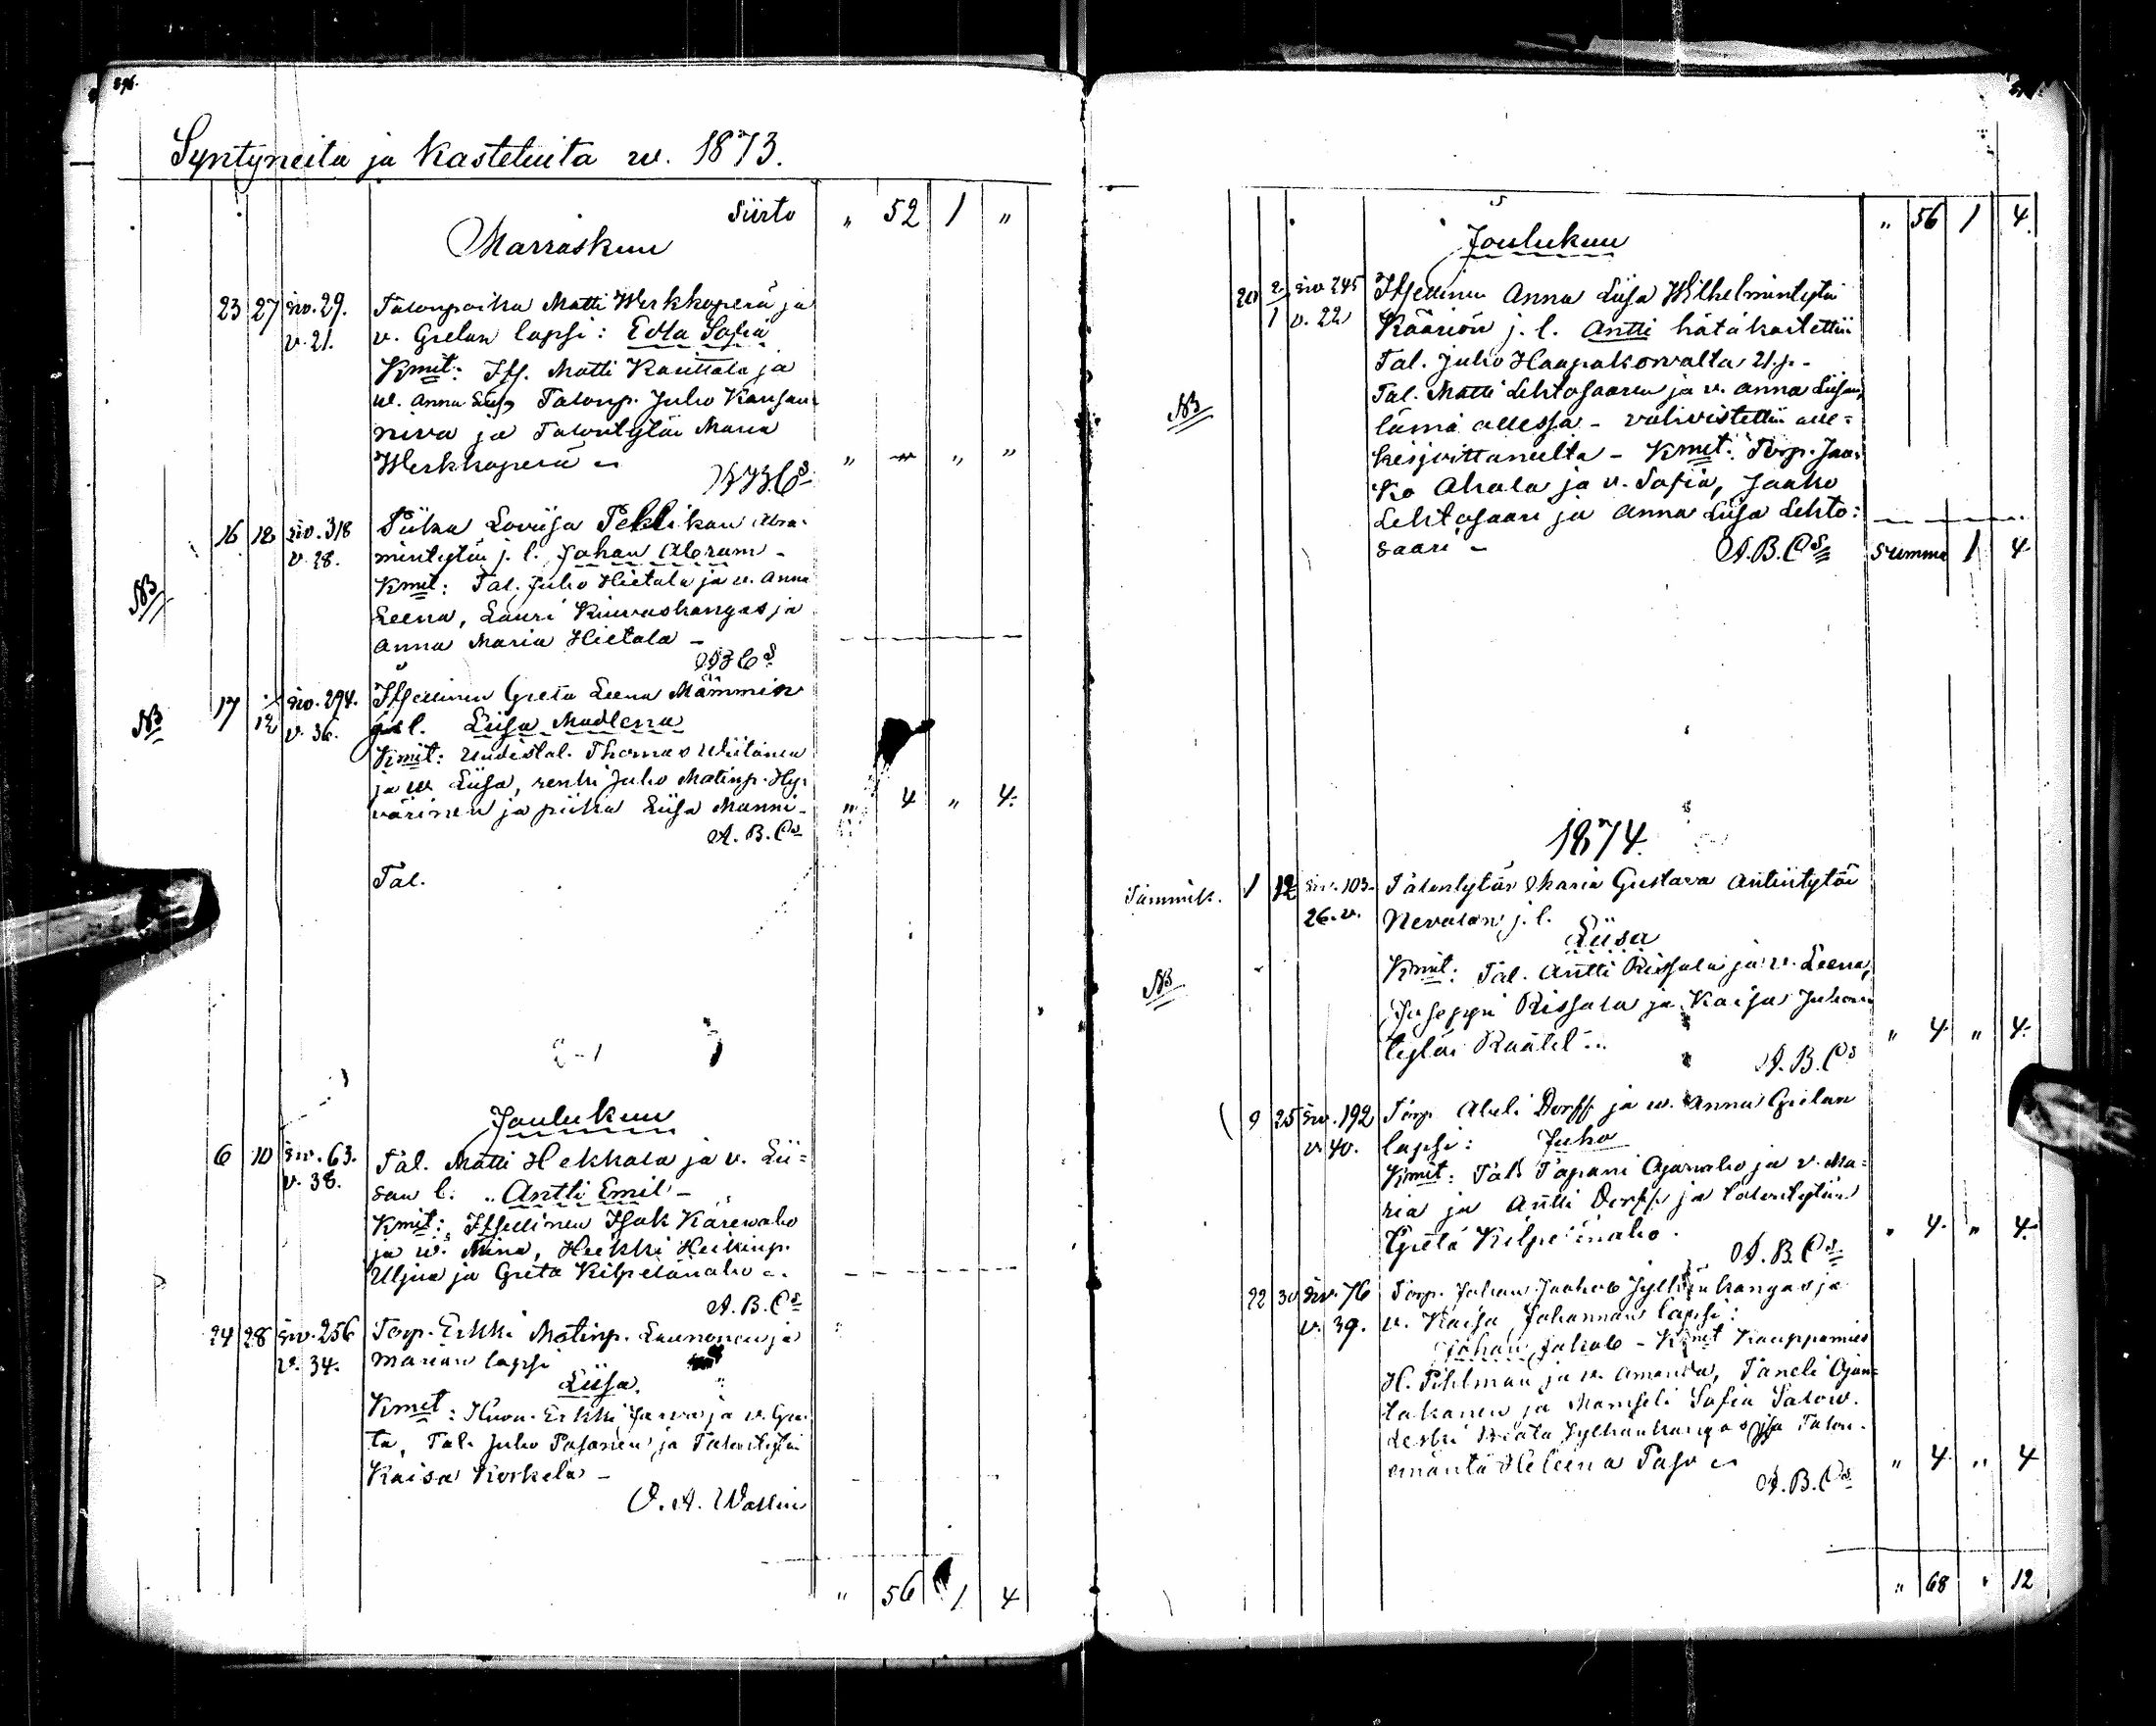 296.
Syntyneitä ja Kastetuita w. 1873.
Siirto " 52 1 "
Marraskuu
23 27 siv. 29. Talonpoika Matti Werkkoperä ja
v. 21. v. Gretan lapsi: Edla Sofia
Kmit: Its. Matti Kanttola ja
w. Anna Liisa Talonp. Juho Kangas
niva ja Talontytär Maria
Werkkoperä " " "
16 18 siv. 318 Piika Loviisa Pekkikan Abra-
v. 28. mintytär j. l. Johan Abram -
NB Kmit: Tal. Juho Hietala ja v. Anna
Leena, Lauri Kiuruskangas ja
Anna Maria Hietala -
NB 17 12 siv. 294. Itsellinen Greta Leena Mämmin
v. 36. j. l. Liisa Madlena
Kmit: Uudistal. Thomas Wiitanen
ja w. Liisa, renki Juho Matinp. Hy-
värinen ja piika Liisa Manni - " 4 " 4.
A. B. Cs
Tal.
Joulukuu
6 10 siv. 63. Tal. Matti Hekkala ja v. Lii=
v. 38. san l: Antti Emil -
Kmit: Itsellinen Isak Kärewaho
ja w. Mina, Heikki Heikinp.
Uljua ja Greta Kilpelänaho
A. B. Cs
24 28 siv. 256 Torp. Erkki Matinp. Launonen ja
v. 34. Marian lapsi
Liisa.
Kmit: Erkki Jarva ja v. Gre-
ta, Tal. Juho Pasanen ja Talontytär
Kaisa Korkela -
O. A. Wallin
" 56 1 4
" 56 1 4.
Joulukuu
20 2/1 siv 245 Itsellinen Anna Liisa Wilhelmintytär
v. 22 Kääriön j. l. Antti hätäkastettiin
Tal. Juho Haapakorvalta 21. p. -
NB Tal. Matti Lehtosaaren ja v. Anna Liisan
läsnä ollessa - vahvistettiin alle=
kirjoittaneelta - Kmit: Torp. Jaa-
ko Ahola ja v. Sofia, Jaako
Lehtosaari ja Anna Liisa Lehto:
saari - A. B. Cs Summa 1 4
1874.
Tammik. 1 12 siv. 103. Talontytär Maria Gustava Antintytär
26. v. Nevalan j. l.
Liisa
NB Kmit: Tal. Antti Rissala ja v. Leena,
Juseppi Rissala ja Kaisa Juhon
tytär Räätel " 4. " 4.
A. B. Cs
9 25 siv. 192 Torp. Abeli Dorff ja w. Anna Gretan
v. 40. lapsi: Juho
Kmit: Tal. Tapani Ojanaho ja v. Ma=
ria ja Antti Dorff ja talontytär
Greta Kilpelänaho. " 4. " 4.
A. B. Cs
22 30 siv. 76 Torp. Johan Jaakob Jylhänkangas ja
v. 39. v. Kaisa Johannan lapsi:
Johan Jakob - Kmit Kauppamies
H. Pihlman ja w. Amanda, Taneli Ojan=
takanen ja Mamseli Sofia Salow.
leski Beata Jylhänkangas ja Talon-
emäntä Heleena Paso " 4. " 4
A. B. Cs
" 68 " 12